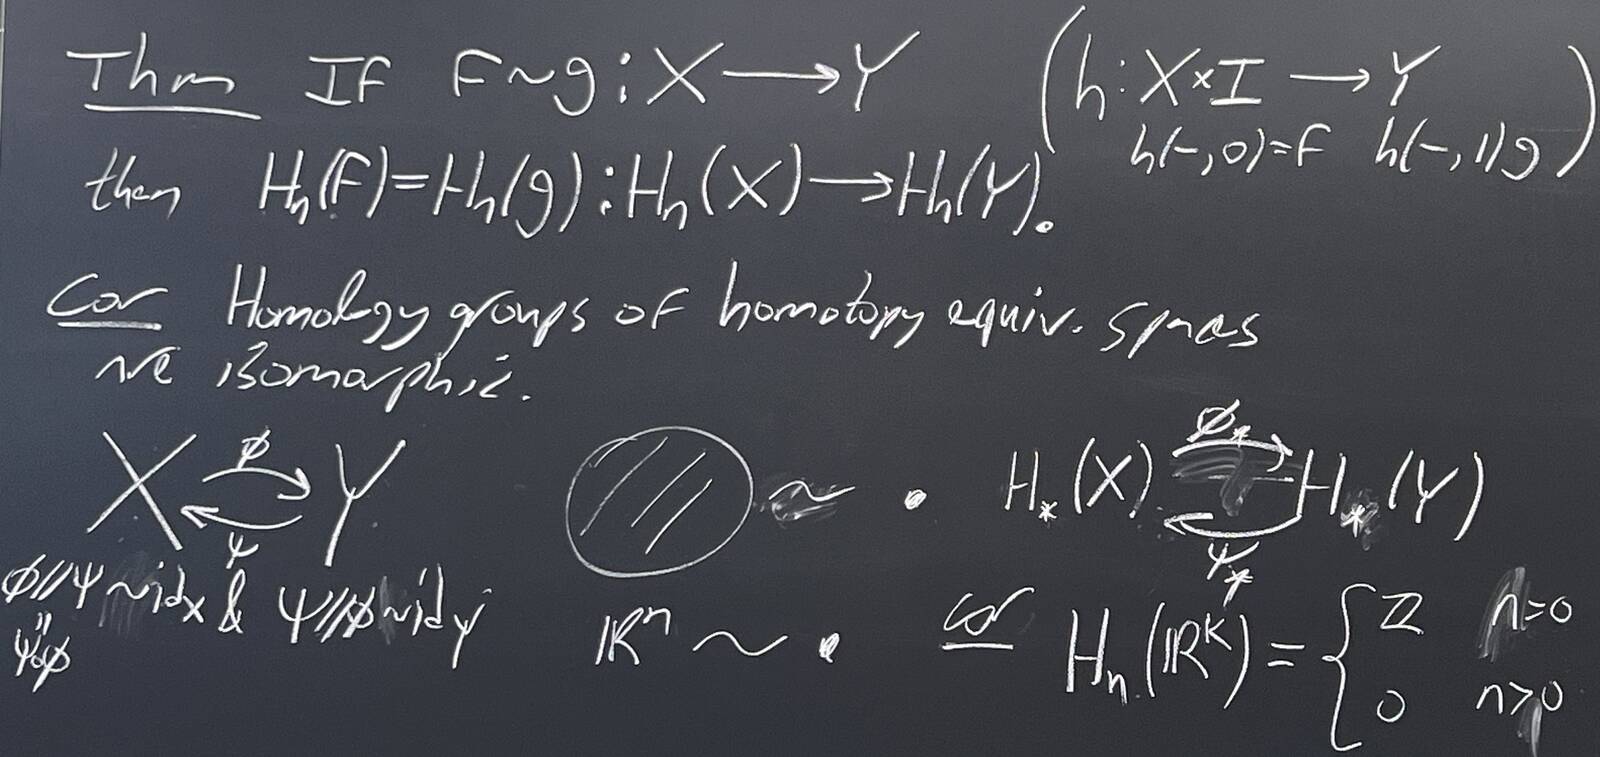 Thm If f~g : X → Y (h : X×I → Y
h(-,0)=f h(-,1)g)
then Hₙ(f)=Hₙ(g) : Hₙ(X) → Hₙ(Y).
Cor Homology groups of homotopy equiv. spaces
are isomorphic.
X ⇄ Y ~ • H_*(X) ⇄ H_*(Y)
φ φ_*
ψ ψ_*
φ//ψ~id_X & ψ//φ~id_Y
||
ψ∘φ
ℝⁿ ~ •
Cor Hₙ(ℝᵏ) = { ℤ n=0
0 n>0